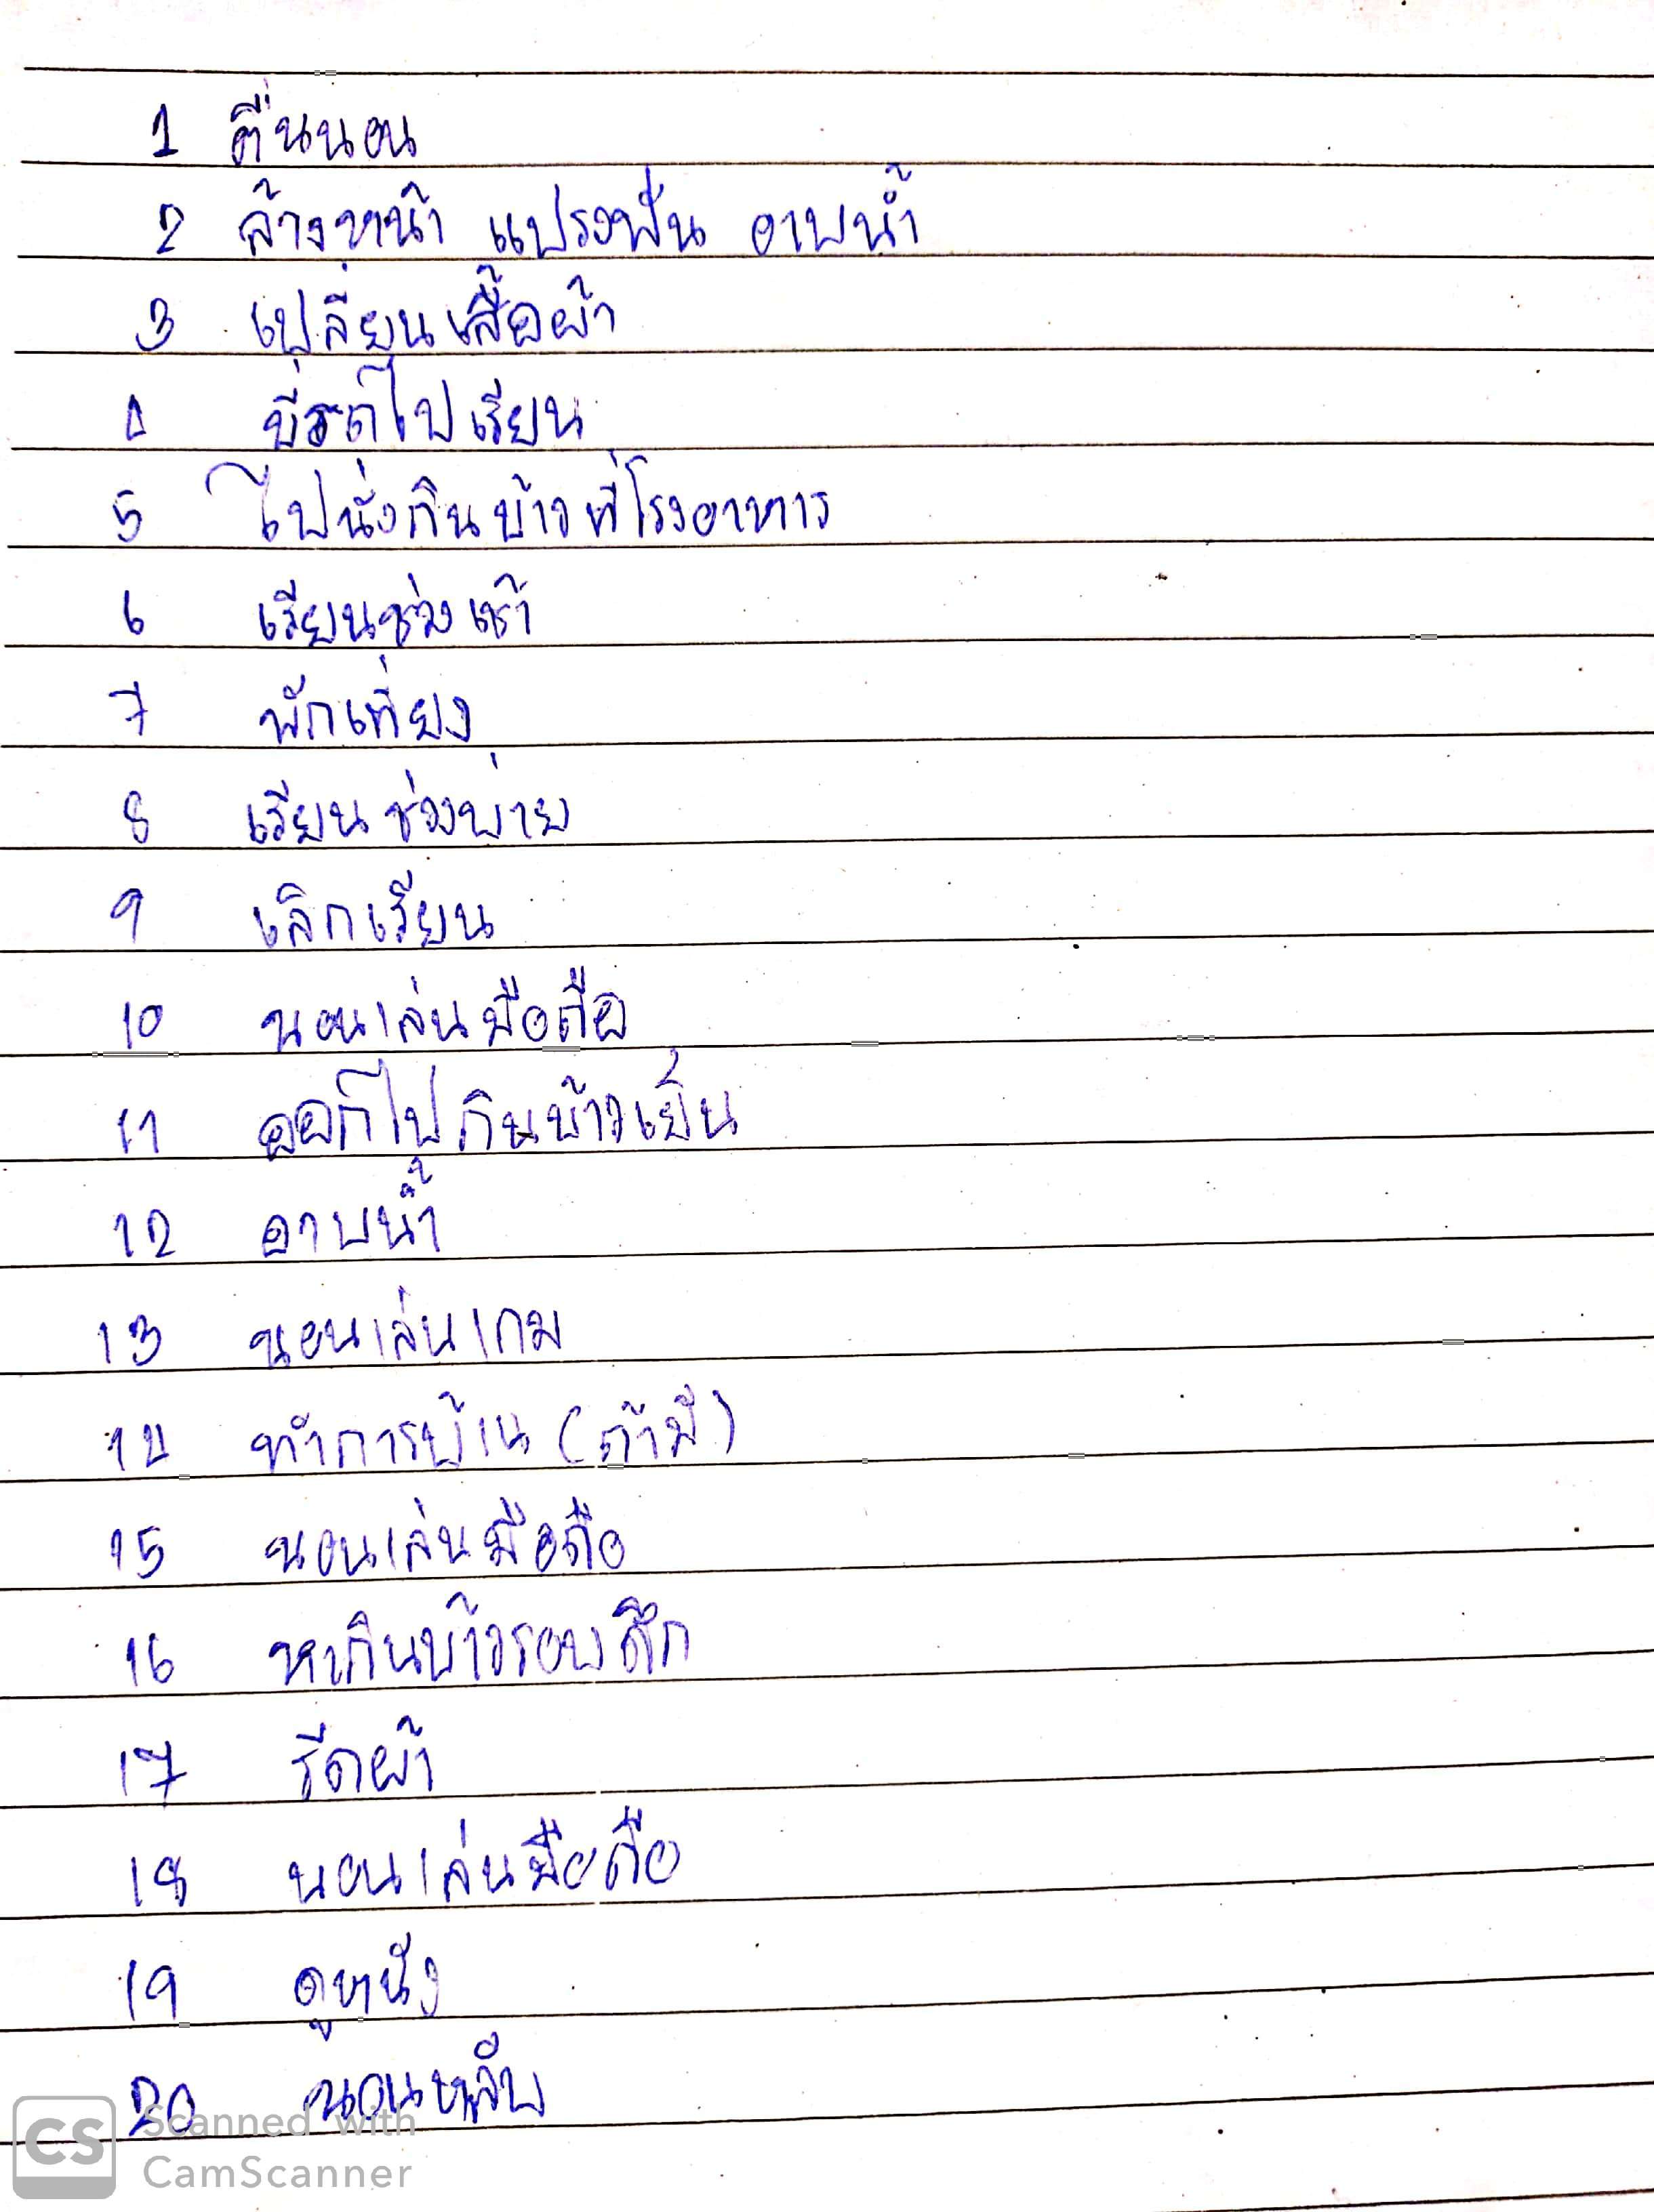 1 ตื่นนอน
2 ล้างหน้า แปรงฟัน อาบน้ำ
3 เปลี่ยนเสื้อผ้า
4 ขี่รถไปเรียน
5 ไปนั่งกินข้าวที่โรงอาหาร
6 เรียนช่วงเช้า
7 พักเที่ยง
8 เรียนช่วงบ่าย
9 เลิกเรียน
10 นอนเล่นมือถือ
11 ออกไปกินข้าวเย็น
12 อาบน้ำ
13 นอนเล่นเกม
14 ทำการบ้าน (ถ้ามี)
15 นอนเล่นมือถือ
16 หากินข้าวรอบดึก
17 รีดผ้า
18 นอนเล่นมือถือ
19 ดูหนัง
20 นอนหลับ
CS Scanned with
CamScanner